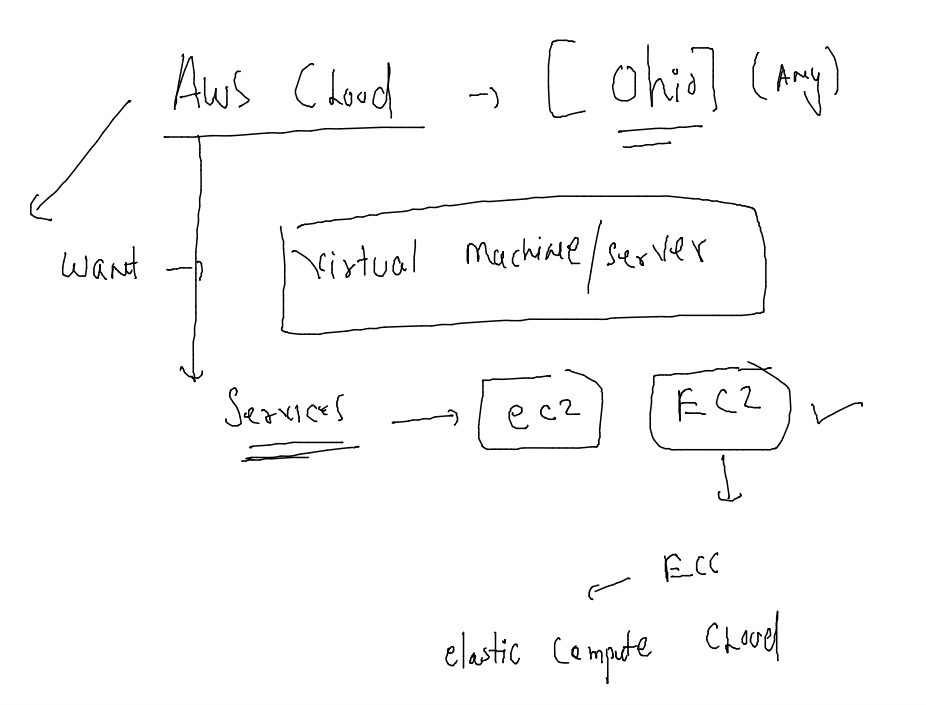 AWS Cloud → [Ohio] (Any)
want → Virtual machine/server
Services → ec2 EC2 ✓
ECC
elastic Compute Cloud